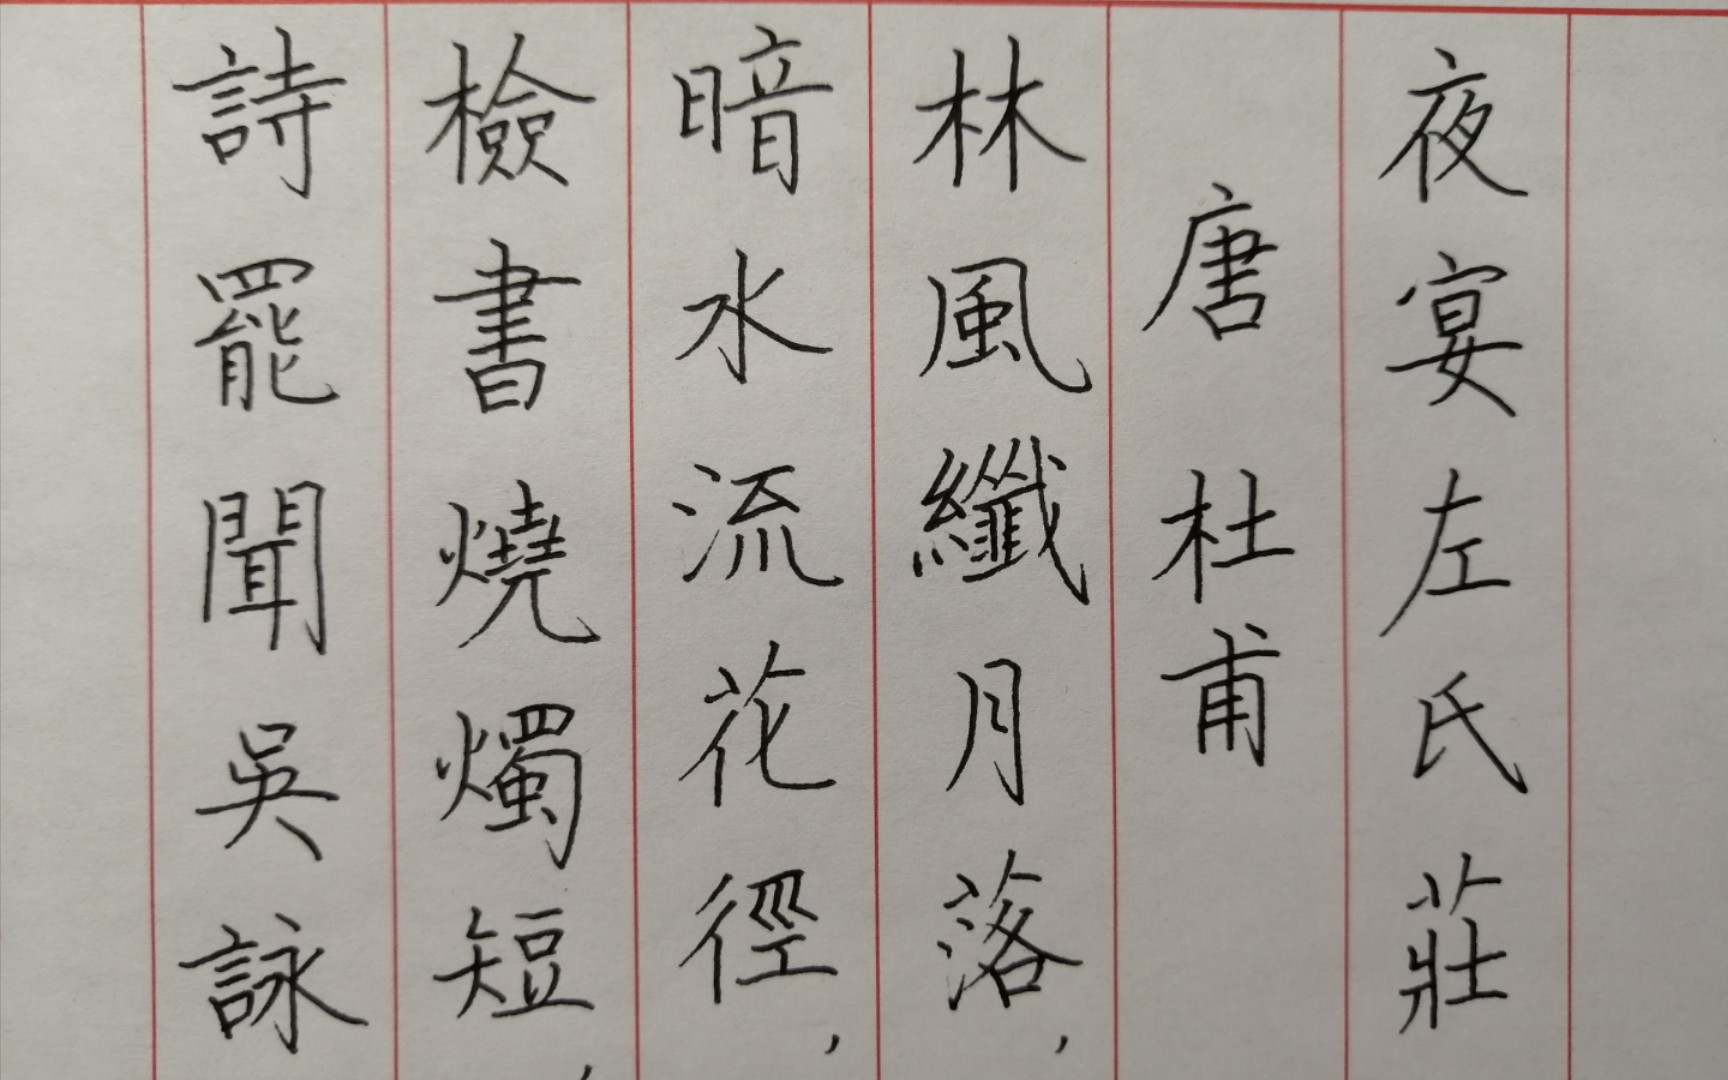 夜宴左氏莊
唐 杜甫
林風纖月落,
暗水流花徑,
檢書燒燭短,
詩罷聞吳詠